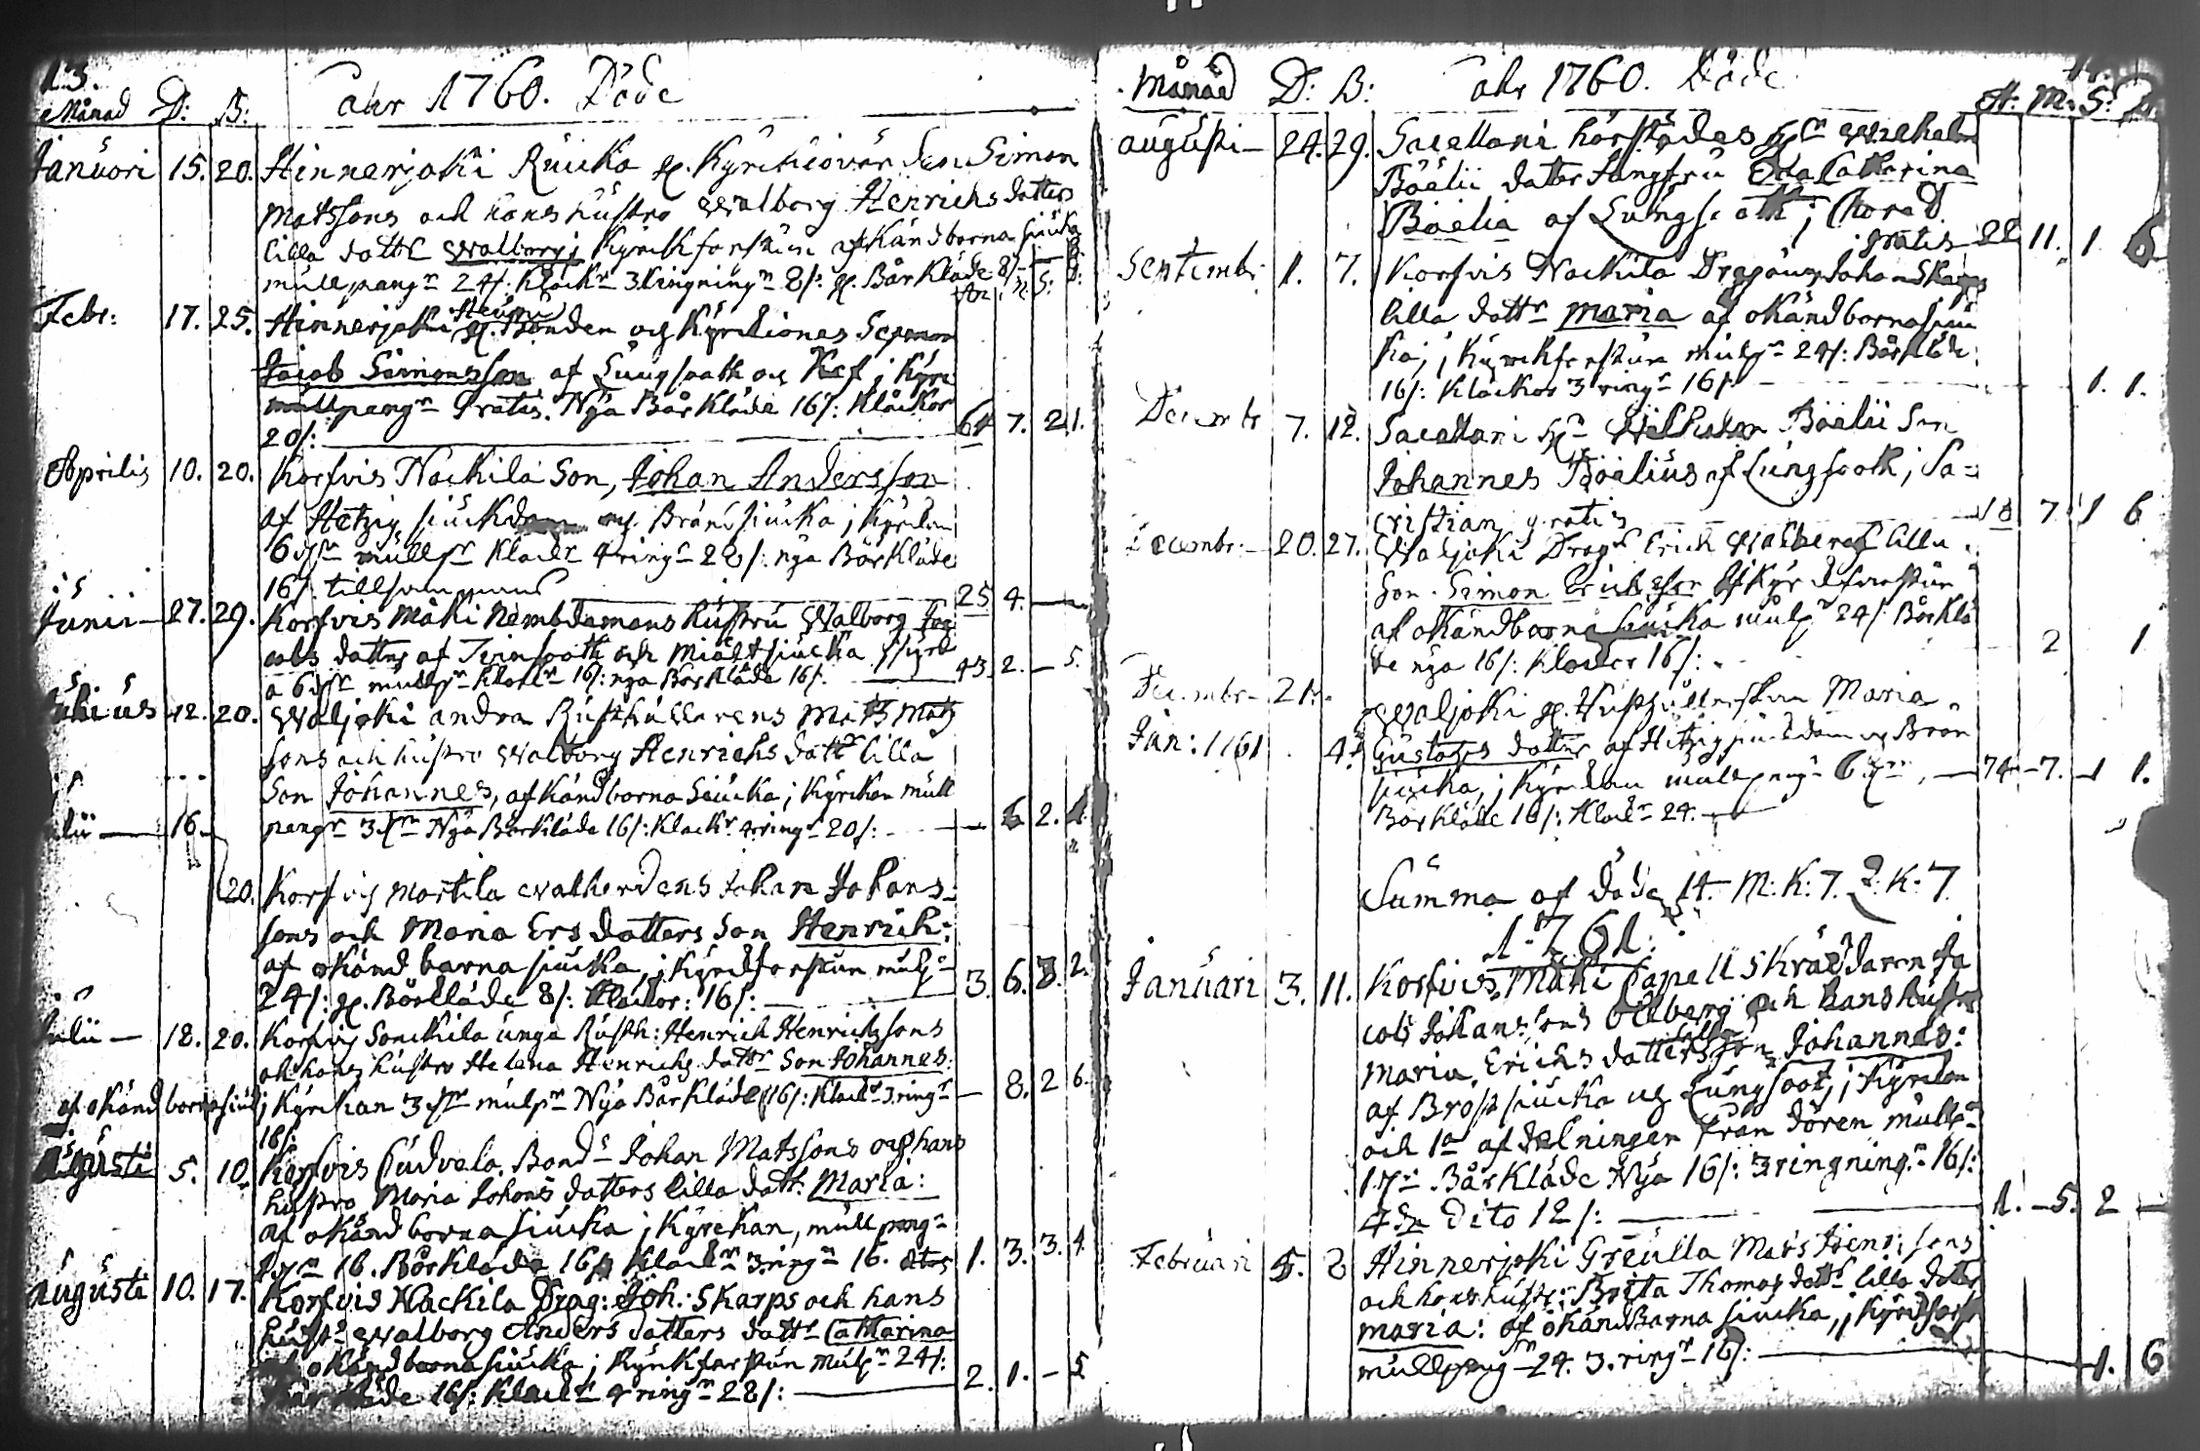 13.
Månad D: B: Åhr 1760. Döde
Januari 15. 20. Hinnerjoki Ruicka gl. Kyrckiovär den Simon
Matssons och hans hustro Walborg Henrichs dotters
lilla dottr Walborg i Kyrckforstun af okänd barna siuka
mullpengr 24/: Klockr 3 ringningr 8/: gl. Bårkläde 8/:
Febr: 17. 25. Hinnerjoki gl. Bonden och Kyrckiones Sexman
Jacob Simonsson af Lungsooth och Kef i Kyrc
mullpengr Gratis. Nya Bårkläde 16/: Klåckor
20/: 61 7. 2 1.
Aprilis 10. 20. Korfvis Nackila Son, Johan Andersson
af Hetzig siuckdom och Bränsiucka i Kyrckan
6 mullpr Klockr 4 ringr 28/: nya Bårkläde
16/: tillsammans 25 4. —
Junii 27. 29. Korfvis Mäki Nembdemans hustru Walborg Jac
cobs dotter af Tvinsooth och Mieltsiucka
a 6 mullpr Klockr 16/: nya Bårkläde 16/: 43. 2. — 5.
Julius 12. 20. Waljoki andra Rusthållarens Matts Matz
sons och hustro Walborg Henrichs dottr lilla
Son Johannes, af känd barna Siucka i Kyrckan mull
Julii 16. pengr 3 Nya Bårkläde 16/: Klockr 4 ringr 20/: — 6 2. 1.
20. Korfvis Martila Johan Johans-
sons och Maria Ers dotters Son Henrich:
af okänd barna siucka i Kyrckforstun mullp
24/: gl. Bårkläde 8/: Klockor: 16/: 3. 6. 3. 2.
Julii — 12. 20. Korfvis Sonckila unga Rusth: Henrich Henrichssons
och hans hustro Helena Henrichs dottr Son Johannes.
af okänd barna siuck i Kyrckan 3 mulpr Nya Bårkläde 16/: Klockr 3 ringr — 8. 2 6.
16/:
Augusti 5. 10. Korfvis Bondr Johan Matssons och hans
hustro Maria Johans dotters lilla dottr Maria:
af okänd barna siucka i Kyrckan, mullpengr
16. Bårkläde 16/: Klockr 3 ringr 16. 1. 3. 3. 4
Augusti 10. 17. Korfvis Nackila Drag: Joh: Skarps och hans
hustr Walborg Anders dotters dottr Catharina
okänd barna siucka i Kyrckforstun mulpr 24/:
Bårkläde 16/: Klockr 4 ringr 28/: 2. 1. — 5
Månad D: B: Åhr 1760. Döde
Å: M: S: D:
Augusti — 24. 29. Sacellani härstädes Hr Wilhelm
Böelii dotter Jungfru Eva Catharina
Böelia af Lungsooth i Choret
gratis 22 11. 1. 6
Septembr. 1. 7. Korfvis Nackila Dragoun Johan Skarps
lilla dottr Maria af okänd barna siu
ka, i Kyrckforstun mulpr 24/: Bårkläde
16/: Klåckor 3 ringr 16/: 1. 1.
Decembr 7. 12. Sacellani Hr Wilhelm Böelii Son
Johannes Böelius af Lungsooth, i Sa=
cristian, gratis 18 7 1 6
Decembr. 20. 27. Waljoki Dragr Erich Walbergs lilla
Son Simon Ericksson i Kyrckforstun
af okänd barna siucka mulpr 24/: Bårklä
de nya 16/: Klockr 16/: 2 1
Decembr 21. Waljoki gl. Rusthållerskan Maria
Jan: 1761 4. Gustafs dotter af Hetzig siuckdom och Brän
siucka, i Kyrckan mullpengr 6 — 74 — 7. 1 1.
Bårkläde 16/: Klockr 24.
Summa af döde 14. M: K: 7. Q: K: 7
1761.
Januari 3. 11. Korfvis, Mäki Capell Skräddaren Ja
cob Johanssons och hans hustro
Maria Erichs dotters lilla son Johannes:
af Brostsiucka och Lungsoot, i Kyrckan
och 1a afdelningen från dören mullpr
Bårkläde Nya 16/: 3 ringningr 16/:
4de dito 12/: 1. — 5. 2 —
Februari 5. 8 Hinnerjoki Greulla Mats Henr: sons
och hans hustr: Brita Thomas dottr lilla dotter
Maria: af okänd Barna siucka, i Kyrckforst
mullpengr 24. 3. ringr 16/: 1. 6